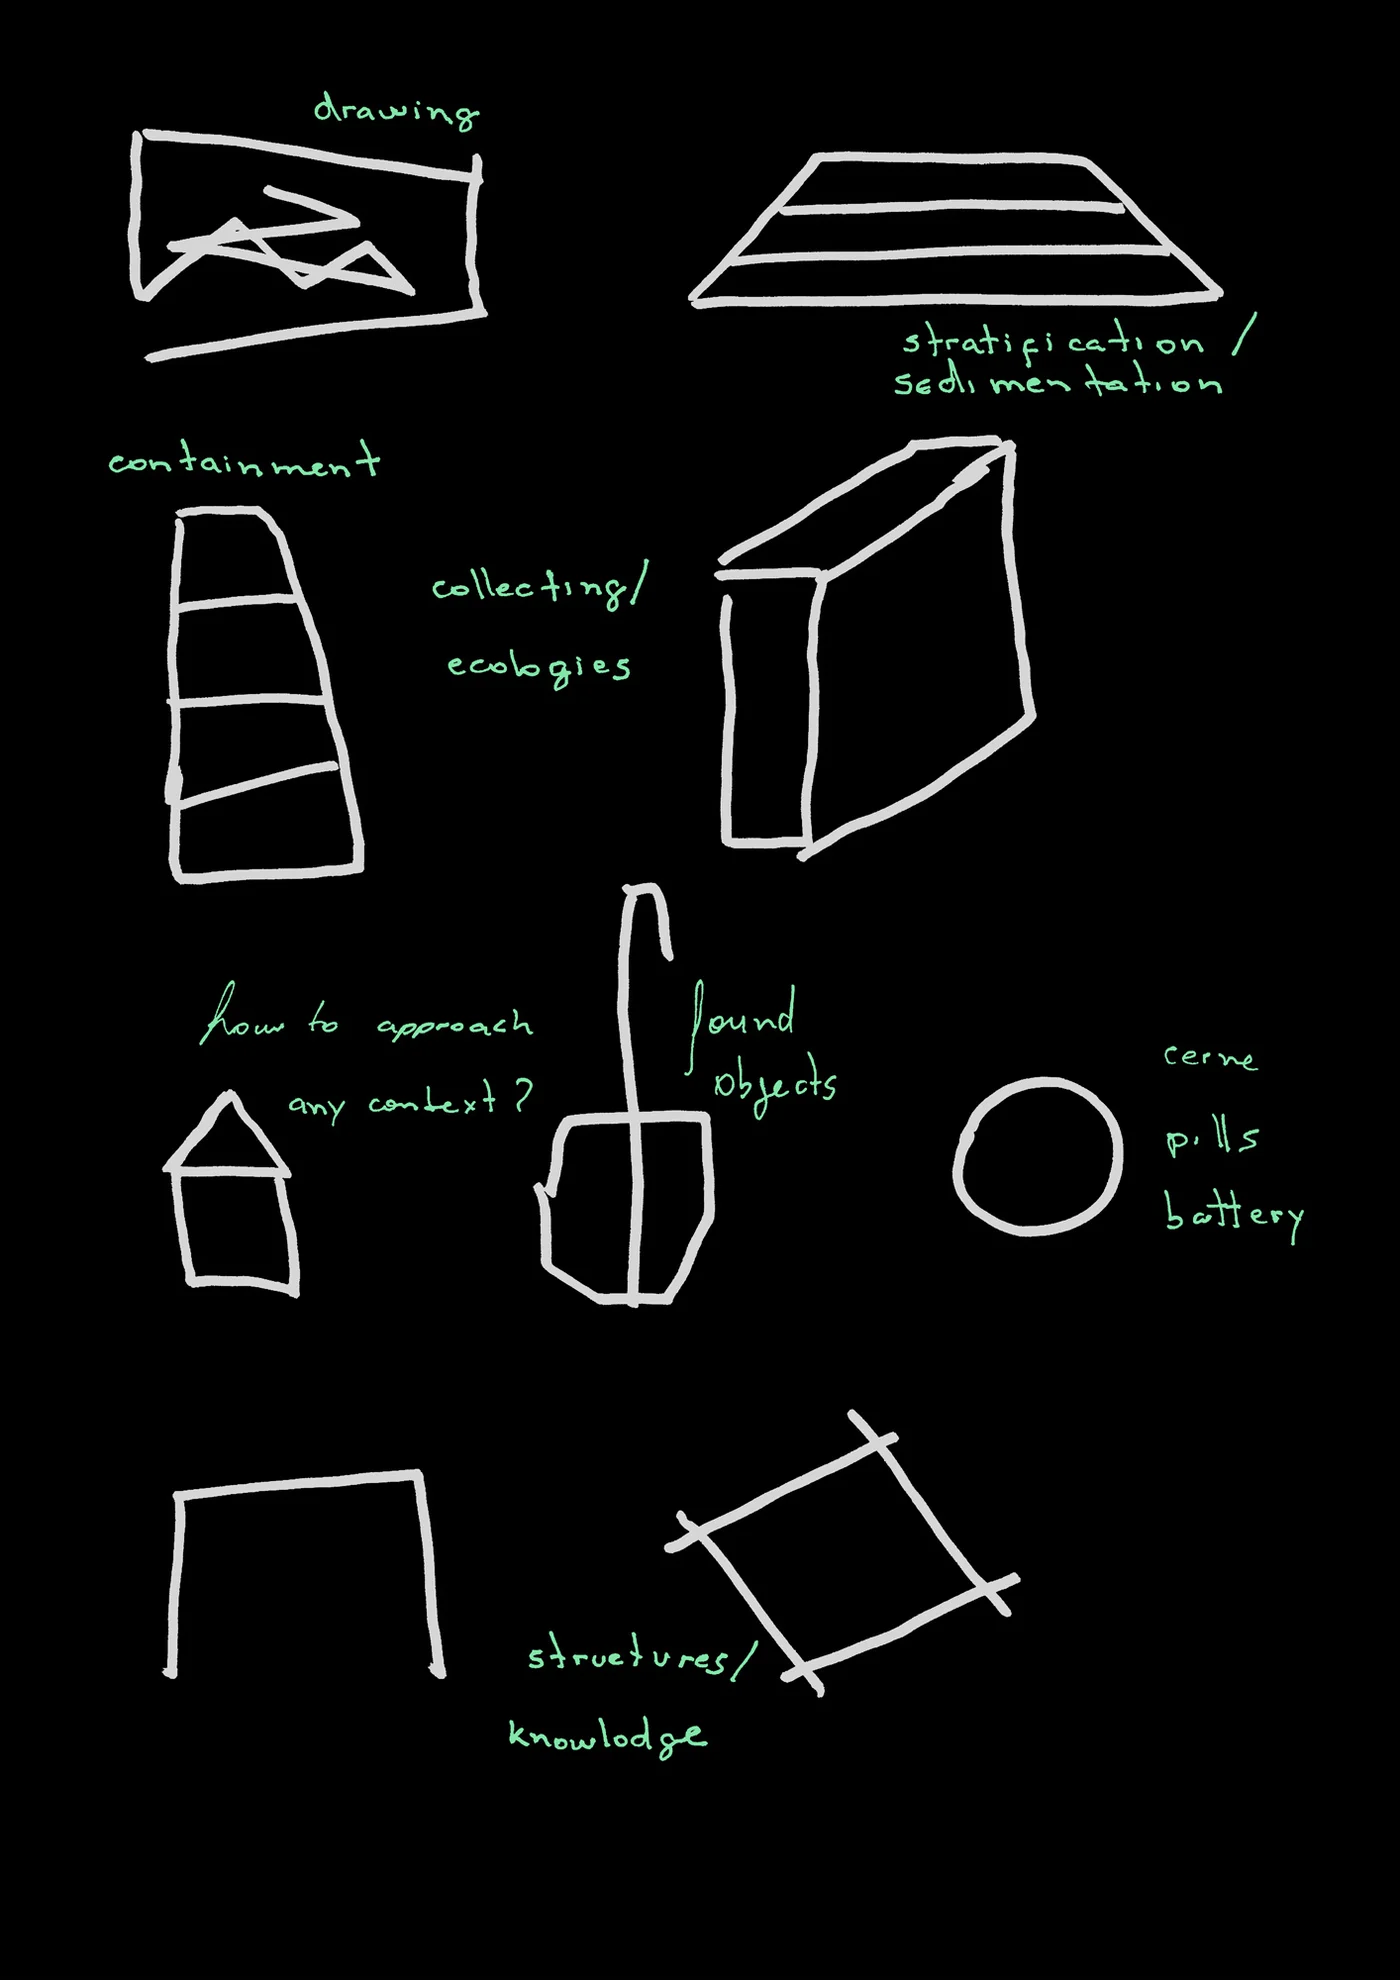 drawing
stratification /
sedimentation
containment
collecting/
ecologies
how to approach
any context?
found
objects
cerne
pills
battery
structures/
knowlodge